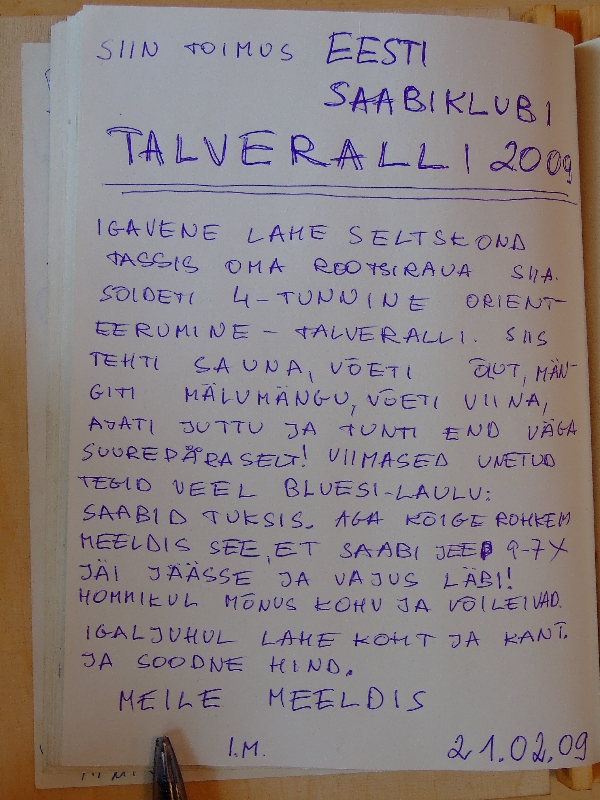 SIIN TOIMUS EESTI
SAABIKLUBI
TALVERALLI 2009
IGAVENE LAHE SELTSKOND
TASSIS OMA ROOTSIRAUA SIIA.
SÕIDETI 4-TUNNINE ORIENT-
EERUMINE - TALVERALLI. SIIS
TEHTI SAUNA, VÕETI ÕLUT, MÄN-
GITI MÄLUMÄNGU, VÕETI VIINA,
AJATI JUTTU JA TUNTI END VÄGA
SUUREPÄRASELT! VIIMASED UNETUD
TEGID VEEL BLUESI-LAULU:
SAABID TUKSIS. AGA KÕIGE ROHKEM
MEELDIS SEE, ET SAABI JEEP 9-7X
JÄI JÄÄSSE JA VAJUS LÄBI!
HOMMIKUL MÕNUS KOHV JA VÕILEIVAD.
IGALJUHUL LAHE KOHT JA KANT.
JA SOODNE HIND.
MEILE MEELDIS
I.M. 21.02.09